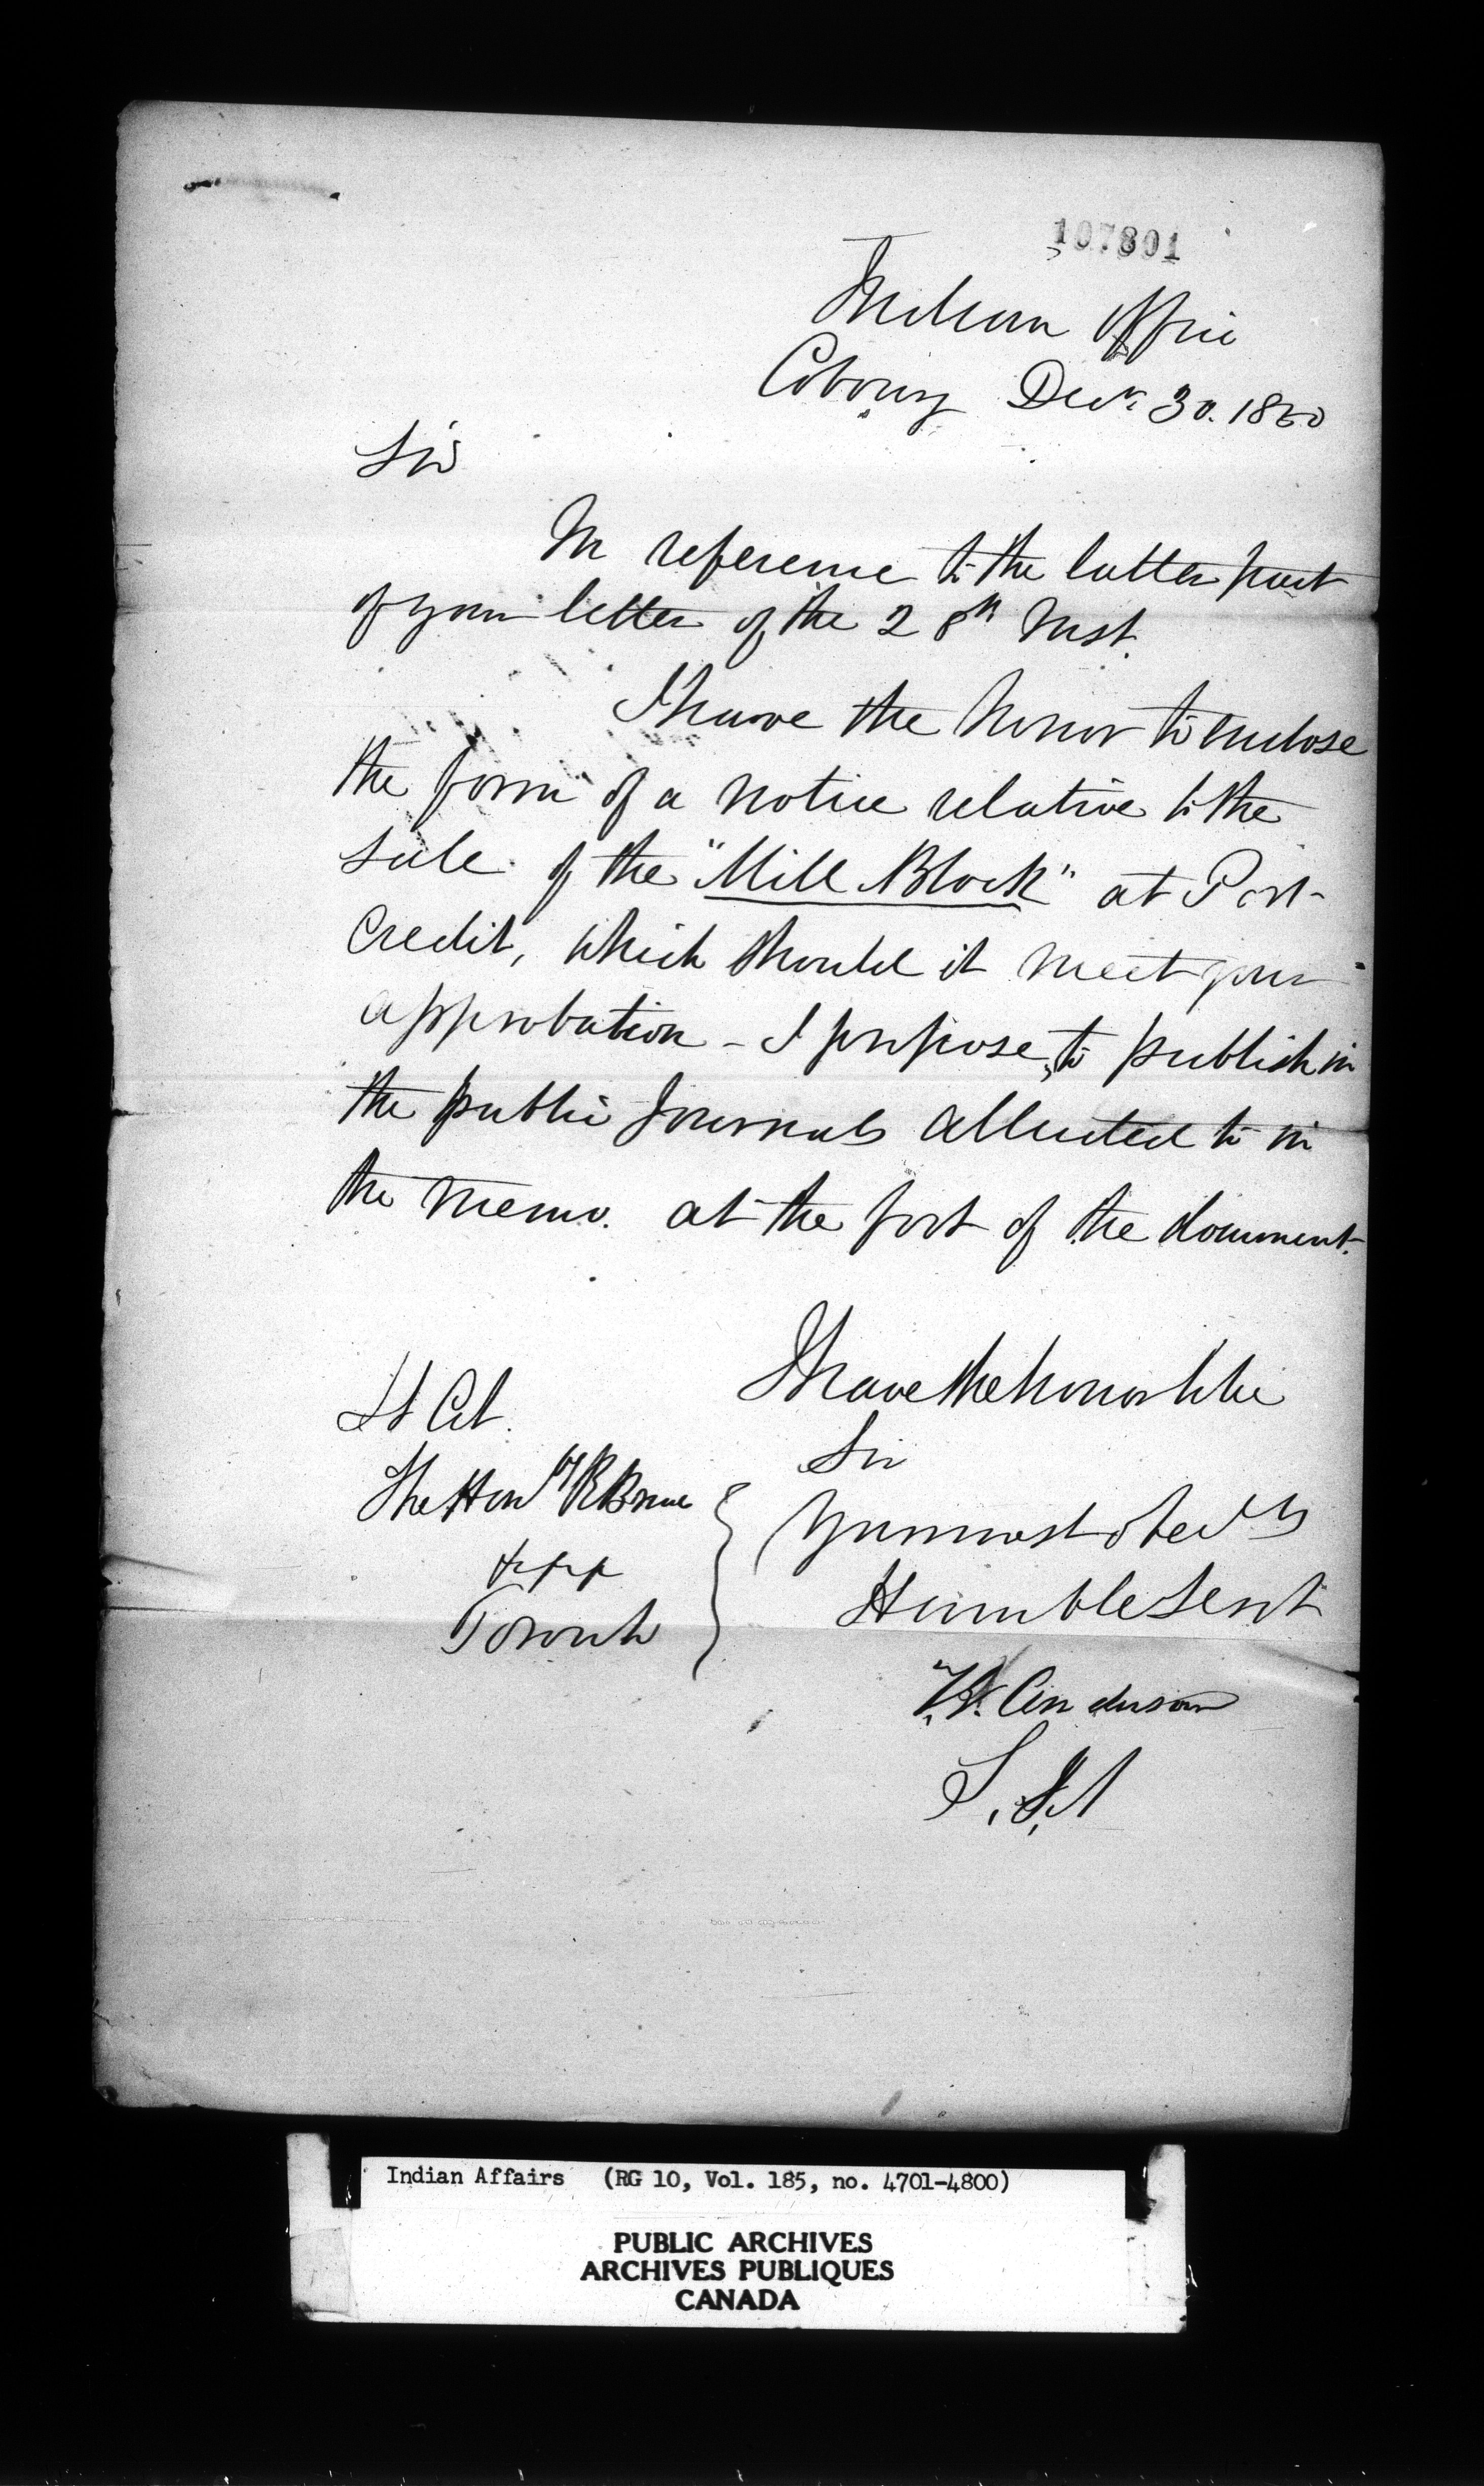 107801
Indian Office
Cobourg Decr. 30. 1850
Sir
In reference to the latter part
of your letter of the 28th Inst.
I have the honor to enclose
the form of a notice relative to the
sale of the "Mill Block" at Port
Credit, which should it meet your
approbation - I propose, to publish in
the public Journals alluded to in
the memo. at the foot of the document.
I have the honor to be
Sir
Your most obedt
Humble Servt
T.G. Anderson
S.I.A
Lt Col.
The Honl R Bruce
&c &c &c
Toronto
Indian Affairs (RG 10, Vol. 185, no. 4701-4800)
PUBLIC ARCHIVES
ARCHIVES PUBLIQUES
CANADA